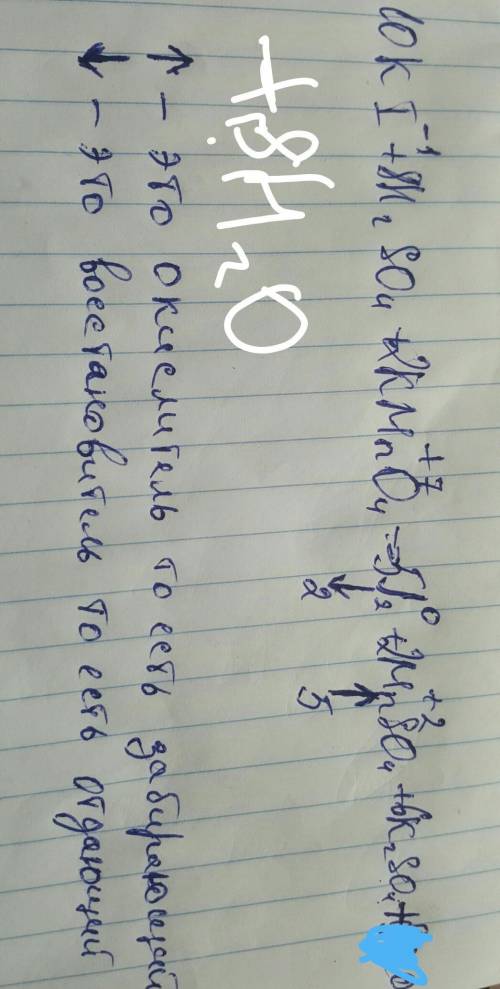 10KI⁻¹ + 8H₂SO₄ + 2KMn⁺⁷O₄ → 5I₂⁰ + 2Mn⁺²SO₄ + 6K₂SO₄ +
2↓ 5↑
+8H₂O
↑ - это окислитель то есть забирающий
↓ - это восстановитель то есть отдающий